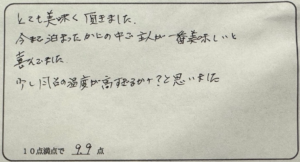 とても美味しく頂きました。
今まで泊まったなかの中で主人が一番美味しいと
喜んでました
少し温度が高すぎるかな?と思いました
10点満点で 99 点